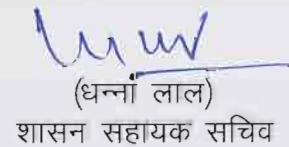 (धन्नां लाल)
शासन सहायक सचिव